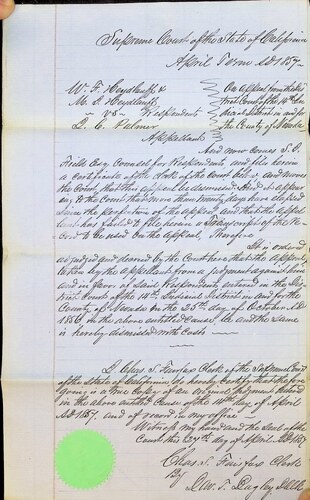 Supreme Court of the State of California
April Term AD 1857
W. F. Heydlauff & On appeal from the Dis
M. L. Heydlauff trict Court of the 14th Ju
vs Respondents dicial District in and for
L. C. Palmer the County of Nevada
Appellant
And now comes S. C.
Field Esq Counsel for Respondents and file herein
a certificate of the clerk of the Court below, and moves
the Court that this appeal be dismissed. And it appear
ing to the Court that more than twenty days have elapsed
since the perfection of the appeal and that the appel
lant has failed to file herein a Transcript of the Re
cord to be used on the appeal, Therefore
It is ordered
adjudged and decreed by the Court here that the appeal
taken by the appellant from a judgment against him
and in favor of said Respondents, entered in the Dis
trict Court of the 14th Judicial District in and for the
County of Nevada on the 25th day of October AD
1856 in the above entitled Cause be and the same
is hereby dismissed with Costs
I, Chas. S. Fairfax Clerk of the Supreme Court
of the State of California do hereby certify that the fore
going is a true Copy of an original judgment entered
in the above entitled Cause on the day of April
AD 1857. and of record in my office.
Witness my hand and the seal of the
Court this 29th day of April AD 1857
Chas. S. Fairfax Clerk
By
Dep. Clk